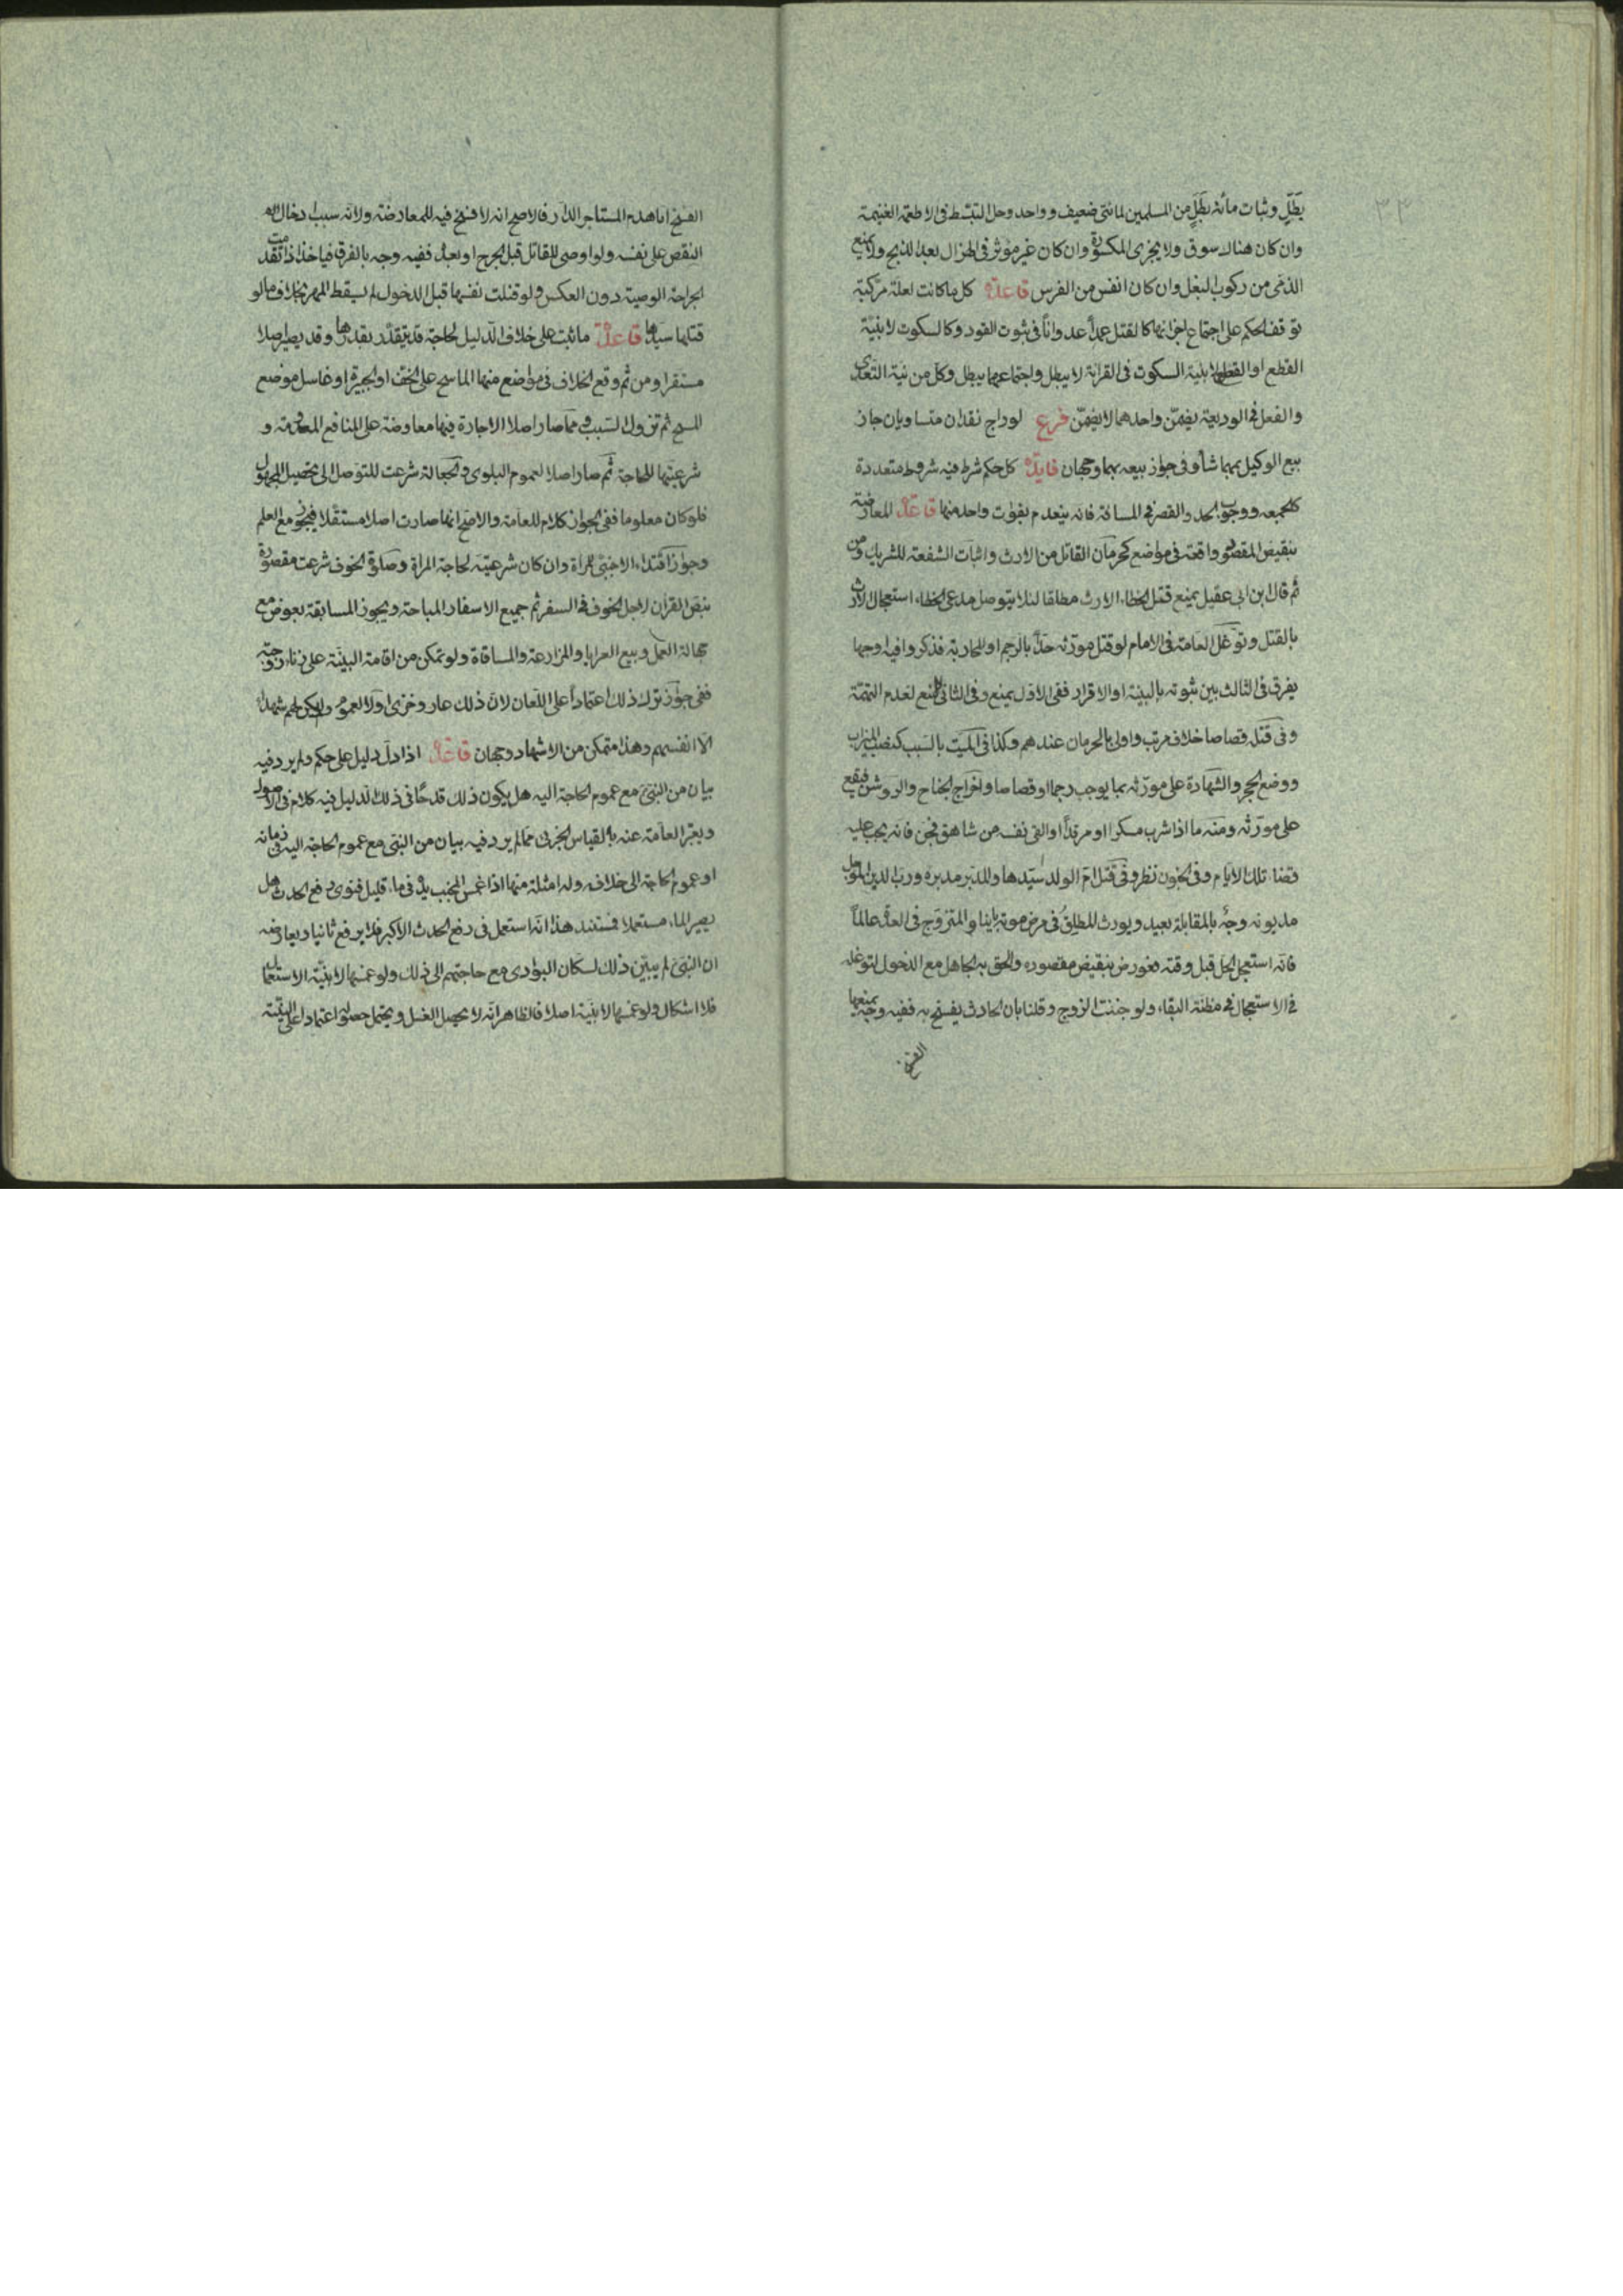 بطل وثبات مائة بطل من المسلمين لمائتي ضعيف وواحد وحل التبسط في الاطعمة الغنيمة
وان كان هناك سوق ولا يجزى المكسورة وان كان غير موثر في الهزال بعد الذبح ولا يمنع
الذمي من ركوب البغل وان كان انفس من الفرس قاعدة كل ما كانت لعلة مركبة
توقف الحكم على اجتماع اجزائها كالقتل عمداً عدواناً في ثبوت القود وكالسكوت لا بنية
القطع او القطع لا بنية السكوت في القراءة لا يبطل واجتماعهما يبطل وكل من نية التعدى
والفعل في الوديعة يضمن واحدهما لا يضمن فرع لو راج نقدان متساويان جاز
بيع الوكيل بهما شاء وفي جواز بيعه بهما وجهان فايدة كل حكم شرط فيه شروط متعددة
كالجمعه ووجوب الحد والقصر في المسافة فانه ينعدم بفوات واحد منها قاعدة المعارضة
بنقيض المقصود واقعة في مواضع كحرمان القاتل من الارث واثبات الشفعة للشريك ومن
ثم قال ابن ابى عقيل بمنع قتل الخطاء الارث مطلقا لئلا يتوصل مدعى الخطاء استعجال الارث
بالقتل وتوغل العامة في الامام لو قتل مورثه حدّاً بالرجم او المحاربة فذكروا فيه اوجها
يفرق في الثالث بين ثبوته بالبينة او الاقرار ففى الاول يمنع وفي الثانى لا يمنع لعدم التهمة
وفى قتله قصاصا خلاف مرتب واولى بالحرمان عندهم وكذا في الميت بالسبب كنصب الميزاب
ووضع الحجر والشهادة على مورثه بما يوجب رجما او قصاصا واخراج الجناح والروشن فيقع
على مورثه ومنه ما اذا شرب مسكرا او مرقداً او القى نفسه من شاهق فجن فانه يجب عليه
قضاء تلك الايام وفي الجنون نظر وفى قتل ام الولد سيدها والمدبر مدبره ورب الدين المؤجل
مديونه وجه بالمقابلة بعيد ويورث المطلق في مرض موته باينا والمتزوج في العدة عالماً
فانه استعجل الحل قبل وقته فعورض بنقيض مقصوده والحق به الجاهل مع الدخول لتوغله
في الاستعجال في مظنة البقاء ولو جننت الزوج وقلنا بان الحادث يفسخ به ففيه وجه بمنعها
الفسخ
الفسخ اما هدم المستاجر الدار فالاصح انه لا فسخ فيه للمعارضة ولانه سبب ادخال
النقص على نفسه ولو اوصى للقاتل قبل الجرح او بعده ففيه وجه بالفرق فياخذ اذا تقدمت
الجراحة الوصية دون العكس ولو قتلت نفسها قبل الدخول لم يسقط المهر بخلاف ما لو
قتلها سيدها قاعدة ما ثبت على خلاف الدليل لحاجة قد يتقدر بقدرها وقد يصير اصلا
مستقرا ومن ثم وقع الخلاف في مواضع منها الماسح على الخف او الجبيرة او غاسل موضع
المسح ثم تزول السبب ومما صار اصلا الاجارة فيها معاوضة على المنافع المعدومة و
شرعيتها للحاجة ثم صار اصلا لعموم البلوى والجعالة شرعت للتوصل الى تحصيل المجهول
فلو كان معلوما ففى الجواز كلام للعامة والاصح انها صارت اصلا مستقلا فيجوز مع العلم
وجواز اقتداء الاجنبي للمراة وان كان شرعيته لحاجة المراة وصلوة الخوف شرعت مقصورة
بنص القران لاجل الخوف في السفر ثم جميع الاسفار المباحة ويجوز المسابقة بعوض مع
جهالة العمل وبيع العرايا والمزارعة والمساقاة ولو تمكن من اقامة البينة على زناء زوجته
ففى جواز ترك ذلك اعتماداً على اللعان لان ذلك عار وخزى اولا لعموم ولم يكن لهم شهداء
الا انفسهم وهذا متمكن من الاشهاد وجهان قاعدة اذا دل دليل على حكم ولم يرد فيه
بيان من النبى مع عموم الحاجة اليه هل يكون ذلك قدحا في ذلك الدليل فيه كلام في الاصول
ويعبر العامة عنه بالقياس الجزئى مما لم يرد فيه بيان من النبى مع عموم الحاجة اليه في زمانه
او عموم الحاجة الى خلافه وله امثلة منها اذا غمس الجنب يده في ماء قليل فنوى رفع الحدث هل
يصير الماء مستعملا فمستند هذا انه استعمل في رفع الحدث الاكبر فلا يرفع ثانيا ويعارضه
ان النبى لم يبين ذلك لسكان البوادى مع حاجتهم الى ذلك ولو غمسها لا بنية الاستعمال
فلا اشكال ولو غمسها لا بنية اصلا فالظاهر انه لا يحصل الغسل ويحتمل حصوله اعتمادا على النية